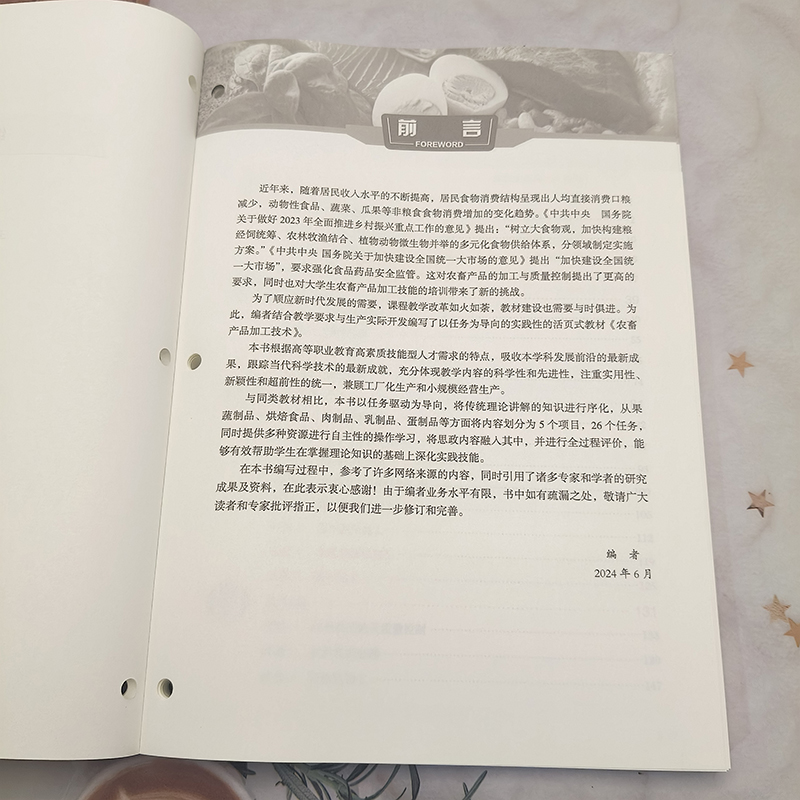 前 言
FOREWORD
近年来，随着居民收入水平的不断提高，居民食物消费结构呈现出人均直接消费口粮
减少，动物性食品、蔬菜、瓜果等非粮食食物消费增加的变化趋势。《中共中央 国务院
关于做好 2023 年全面推进乡村振兴重点工作的意见》提出：“树立大食物观，加快构建粮
经饲统筹、农林牧渔结合、植物动物微生物并举的多元化食物供给体系，分领域制定实施
方案。”《中共中央 国务院关于加快建设全国统一大市场的意见》提出 “加快建设全国统
一大市场”，要求强化食品药品安全监管。这对农畜产品的加工与质量控制提出了更高的
要求，同时也对大学生农畜产品加工技能的培训带来了新的挑战。
为了顺应新时代发展的需要，课程教学改革如火如荼，教材建设也需要与时俱进。为
此，编者结合教学要求与生产实际开发编写了以任务为导向的实践性的活页式教材《农畜
产品加工技术》。
本书根据高等职业教育高素质技能型人才需求的特点，吸收本学科发展前沿的最新成
果，跟踪当代科学技术的最新成就，充分体现教学内容的科学性和先进性，注重实用性、
新颖性和超前性的统一，兼顾工厂化生产和小规模经营生产。
与同类教材相比，本书以任务驱动为导向，将传统理论讲解的知识进行序化，从果
蔬制品、烘焙食品、肉制品、乳制品、蛋制品等方面将内容划分为 5 个项目，26 个任务，
同时提供多种资源进行自主性的操作学习，将思政内容融入其中，并进行全过程评价，能
够有效帮助学生在掌握理论知识的基础上深化实践技能。
在本书编写过程中，参考了许多网络来源的内容，同时引用了诸多专家和学者的研究
成果及资料，在此表示衷心感谢！由于编者业务水平有限，书中如有疏漏之处，敬请广大
读者和专家批评指正，以便我们进一步修订和完善。
编 者
2024 年 6 月